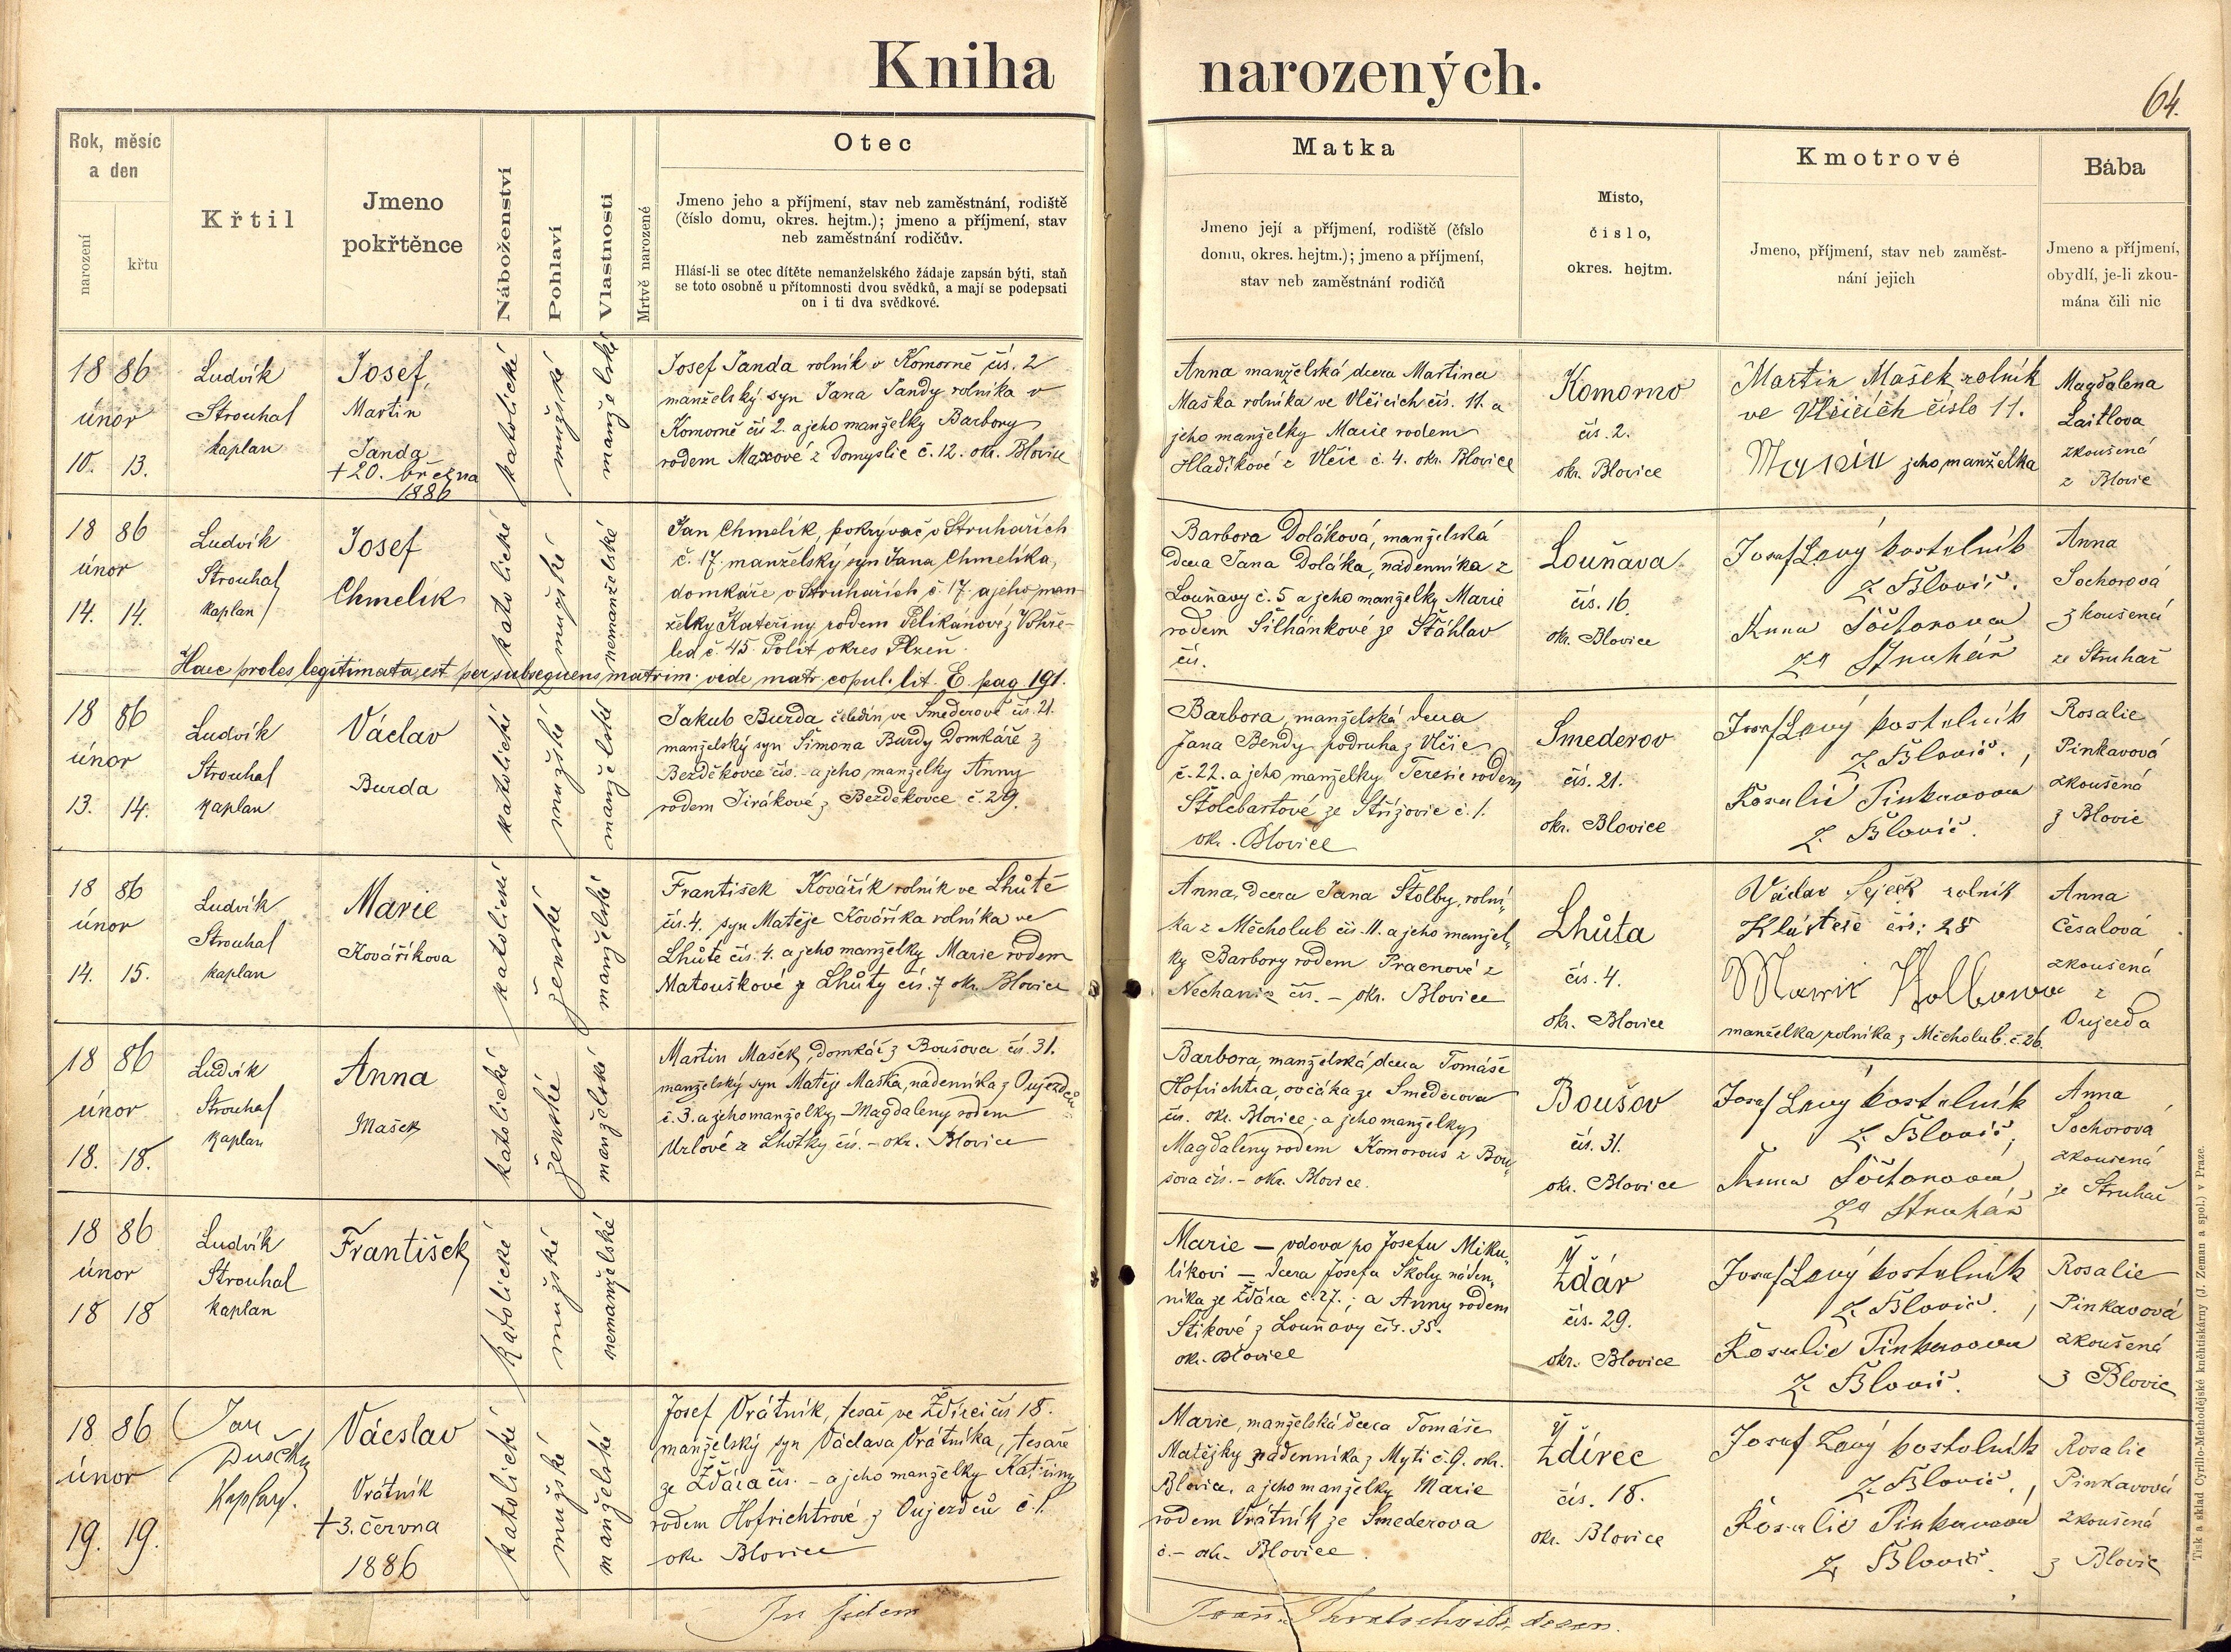 Kniha narozených.
64.
Rok, měsíc
a den
narození
křtu
Křtil
Jmeno
pokřtěnce
Náboženství
Pohlaví
Vlastnosti
Mrtvě narozené
Otec
Jmeno jeho a příjmení, stav neb zaměstnání, rodiště
(číslo domu, okres. hejtm.); jmeno a příjmení, stav
neb zaměstnání rodičův.
Hlásí-li se otec dítěte nemanželského žádaje zapsán býti, staň
se toto osobně u přítomnosti dvou svědků, a mají se podepsati
on i ti dva svědkové.
Matka
Jmeno její a příjmení, rodiště (číslo
domu, okres. hejtm.); jmeno a příjmení,
stav neb zaměstnání rodičů
Místo,
číslo,
okres. hejtm.
Kmotrové
Jmeno, příjmení, stav neb zaměst-
nání jejich
Bába
Jmeno a příjmení,
obydlí, je-li zkou-
mána čili nic
18 86
únor
10. 13.
Ludvík
Strouhal
kaplan
Josef,
Martin
Janda
+ 20. března
1886
katolické
mužské
manželské
Josef Janda rolník v Komorně čís. 2
manželský syn Jana Jandy rolníka v
Komorně čís 2. a jeho manželky Barbory
rodem Maxové z Domyslic č. 12. okr. Blovice
Anna manželská dcera Martina
Maška rolníka ve Vlčicích čís. 11. a
jeho manželky Marie rodem
Hladíkové z Vlčic č. 4. okr. Blovice
Komorno
čís. 2.
okr. Blovice
Martin Mašek rolník
ve Vlčicích číslo 11.
jeho manželka
Magdalena
Laitlova
zkoušená
z Blovic
18 86
únor
14. 14.
Ludvík
Strouhal
kaplan
Josef
Chmelík
katolické
mužské
nemanželské
Jan Chmelík, pokrývač v Struhařích
č. 17. manželský syn Jana Chmelíka,
domkáře v Struhařích č. 17. a jeho man-
želky Kateřiny rodem Pelikánové z Vohře-
led č. 45. Polit okres Plzeň.
Haec proles legitimata est per subsequens matrim. vide matr. copul. lit. E. pag. 191.
Barbora Doláková, manželská
dcera Jana Doláka, nádenníka z
Louňavy č. 5 a jeho manželky Marie
rodem Šilhánkové ze Šťáhlav
čís.
Louňava
čís. 16.
okr. Blovice
Josef Levý kostelník
z Blovic.
Anna Sochorova
ze Struhář
Anna
Sochorová
zkoušená
ze Struhař
18 86
únor
13. 14.
Ludvík
Strouhal
kaplan
Václav
Burda
katolické
mužské
manželské
Jakub Burda čeledín ve Smederově čís. 21.
manželský syn Šimona Burdy Domkáře z
Bezděkovce čís. - a jeho manželky Anny
rodem Jirákové z Bezděkovce č. 29.
Barbora, manželská dcera
Jana Bendy podruha z Vlčic
č. 22. a jeho manželky Teresie rodem
Štolcbartové ze Střížovic č. 1.
okr. Blovice
Smederov
čís. 21.
okr. Blovice
Josef Levý kostelník
z Blovic.,
Rosalie Pinkavova
z Blovic.
Rosalie
Pinkavová
zkoušená
z Blovic
18 86
únor
14. 15.
Ludvík
Strouhal
kaplan
Marie
Kováříkova
katolické
ženské
manželské
František Kovářík rolník ve Lhůtě
čís. 4. syn Matěje Kováříka rolníka ve
Lhůtě čís. 4. a jeho manželky Marie rodem
Matouškové z Lhůty čís. 7 okr. Blovice
Anna, dcera Jana Štolby, rolní-
ka z Měcholub čís. 11. a jeho manžel-
ky Barbory rodem Pracnové z
Nechanic čís. - okr. Blovice
Lhůta
čís. 4.
okr. Blovice
Václav rolník
Klášteře čís: 28
Marie
manželka rolníka z Měcholub. č. 26.
Anna
Česalová
zkoušená
z
Oujezda
18 86
únor
18. 18.
Ludvík
Strouhal
kaplan
Anna
Mašek
katolické
ženské
manželské
Martin Mašek, domkář z Boušova čís. 31.
manželský syn Matěje Maška, nádenníka z Oujezdců
č. 3. a jeho manželky Magdaleny rodem
Urlové z Lhotky čís. - okr. Blovice
Barbora, manželská dcera Tomáše
Hofrichtra, ovčáka ze Smederova
čís. okr. Blovice, a jeho manželky
Magdaleny rodem Komorous z Bou-
šova čís. - okr. Blovice.
Boušov
čís. 31.
okr. Blovice
Josef Levý kostelník
z Blovic,
Anna Sochorova
ze Struhář
Anna
Sochorová
zkoušená
ze Struhař
18 86
únor
18 18
Ludvík
Strouhal
kaplan
František
katolické
mužské
nemanželské
Marie - vdova po Josefu Miku-
líkovi - dcera Josefa Školy náden-
níka ze Žďára č. 27.; a Anny rodem
Štikové z Louňavy čís. 35.
okr. Blovice
Ždár
čís. 29.
okr. Blovice
Josef Levý kostelník
z Blovic.,
Rosalie Pinkavova
z Blovic.
Rosalie
Pinkavová
zkoušená
z Blovic
18 86
únor
19. 19.
Jan
Duschl
Kaplan.
Vácslav
Vrátník
+ 3. června
1886
katolické
mužské
manželské
Josef Vrátník, tesař ve Ždírci čís 18.
manželský syn Václava Vrátníka, tesaře
ze Žďára čís. - a jeho manželky Kateřiny
rodem Hofrichtrové z Oujezdců č. 1.
okr. Blovice
Marie, manželská dcera Tomáše
Matějky nádenníka z Mýti č. 9. okr.
Blovice, a jeho manželky Marie
rodem Vrátník ze Smederova
č. - okr. Blovice.
Ždírec
čís. 18.
okr. Blovice
Josef Levý kostelník
z Blovic.,
Rosalie Pinkavová
z Blovic.
Rosalie
Pinkavová
zkoušená
z Blovic
In fidem
Tisk a sklad Cyrillo-Methodějské knihtiskárny (J. Zeman a spol.) v Praze.